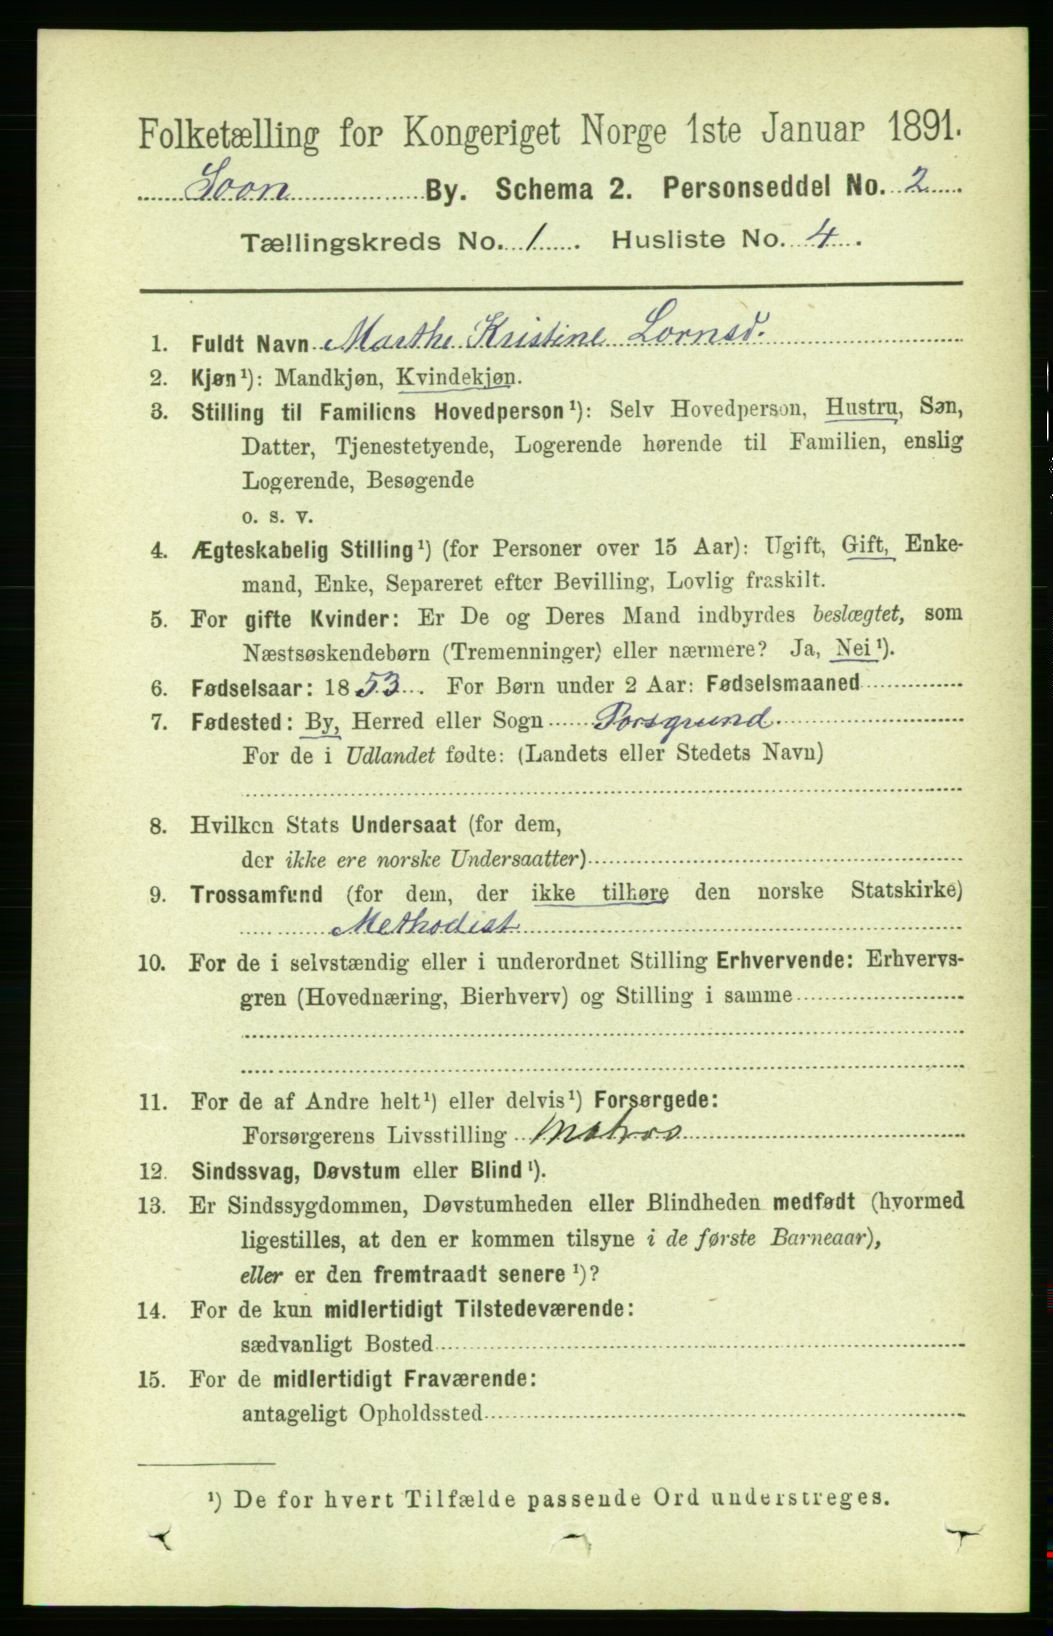 Folketælling for Kongeriget Norge 1ste Januar 1891.
Soon By. Schema 2. Personseddel No. 2
Tællingskreds No. 1. Husliste No. 4.
1. Fuldt Navn Marthe Kristine Lornsd.
2. Kjøn¹): Mandkjøn, Kvindekjøn.
3. Stilling til Familiens Hovedperson¹): Selv Hovedperson, Hustru, Søn,
Datter, Tjenestetyende, Logerende hørende til Familien, enslig
Logerende, Besøgende
o. s. v.
4. Ægteskabelig Stilling¹) (for Personer over 15 Aar): Ugift, Gift, Enke-
mand, Enke, Separeret efter Bevilling, Lovlig fraskilt.
5. For gifte Kvinder: Er De og Deres Mand indbyrdes beslægtet, som
Næstsøskendebørn (Tremenninger) eller nærmere? Ja, Nei¹).
6. Fødselsaar: 1853. For Børn under 2 Aar: Fødselsmaaned
7. Fødested: By, Herred eller Sogn Porsgrund.
For de i Udlandet fødte: (Landets eller Stedets Navn)
8. Hvilken Stats Undersaat (for dem,
der ikke ere norske Undersaatter)
9. Trossamfund (for dem, der ikke tilhøre den norske Statskirke)
Methodist
10. For de i selvstændig eller i underordnet Stilling Erhvervende: Erhvervs-
gren (Hovednæring, Bierhverv) og Stilling i samme
11. For de af Andre helt¹) eller delvis¹) Forsørgede:
Forsørgerens Livsstilling Matros
12. Sindssvag, Døvstum eller Blind¹).
13. Er Sindssygdommen, Døvstumheden eller Blindheden medfødt (hvormed
ligestilles, at den er kommen tilsyne i de første Barneaar),
eller er den fremtraadt senere¹)?
14. For de kun midlertidigt Tilstedeværende:
sædvanligt Bosted
15. For de midlertidigt Fraværende:
antageligt Opholdssted
¹) De for hvert Tilfælde passende Ord understreges.